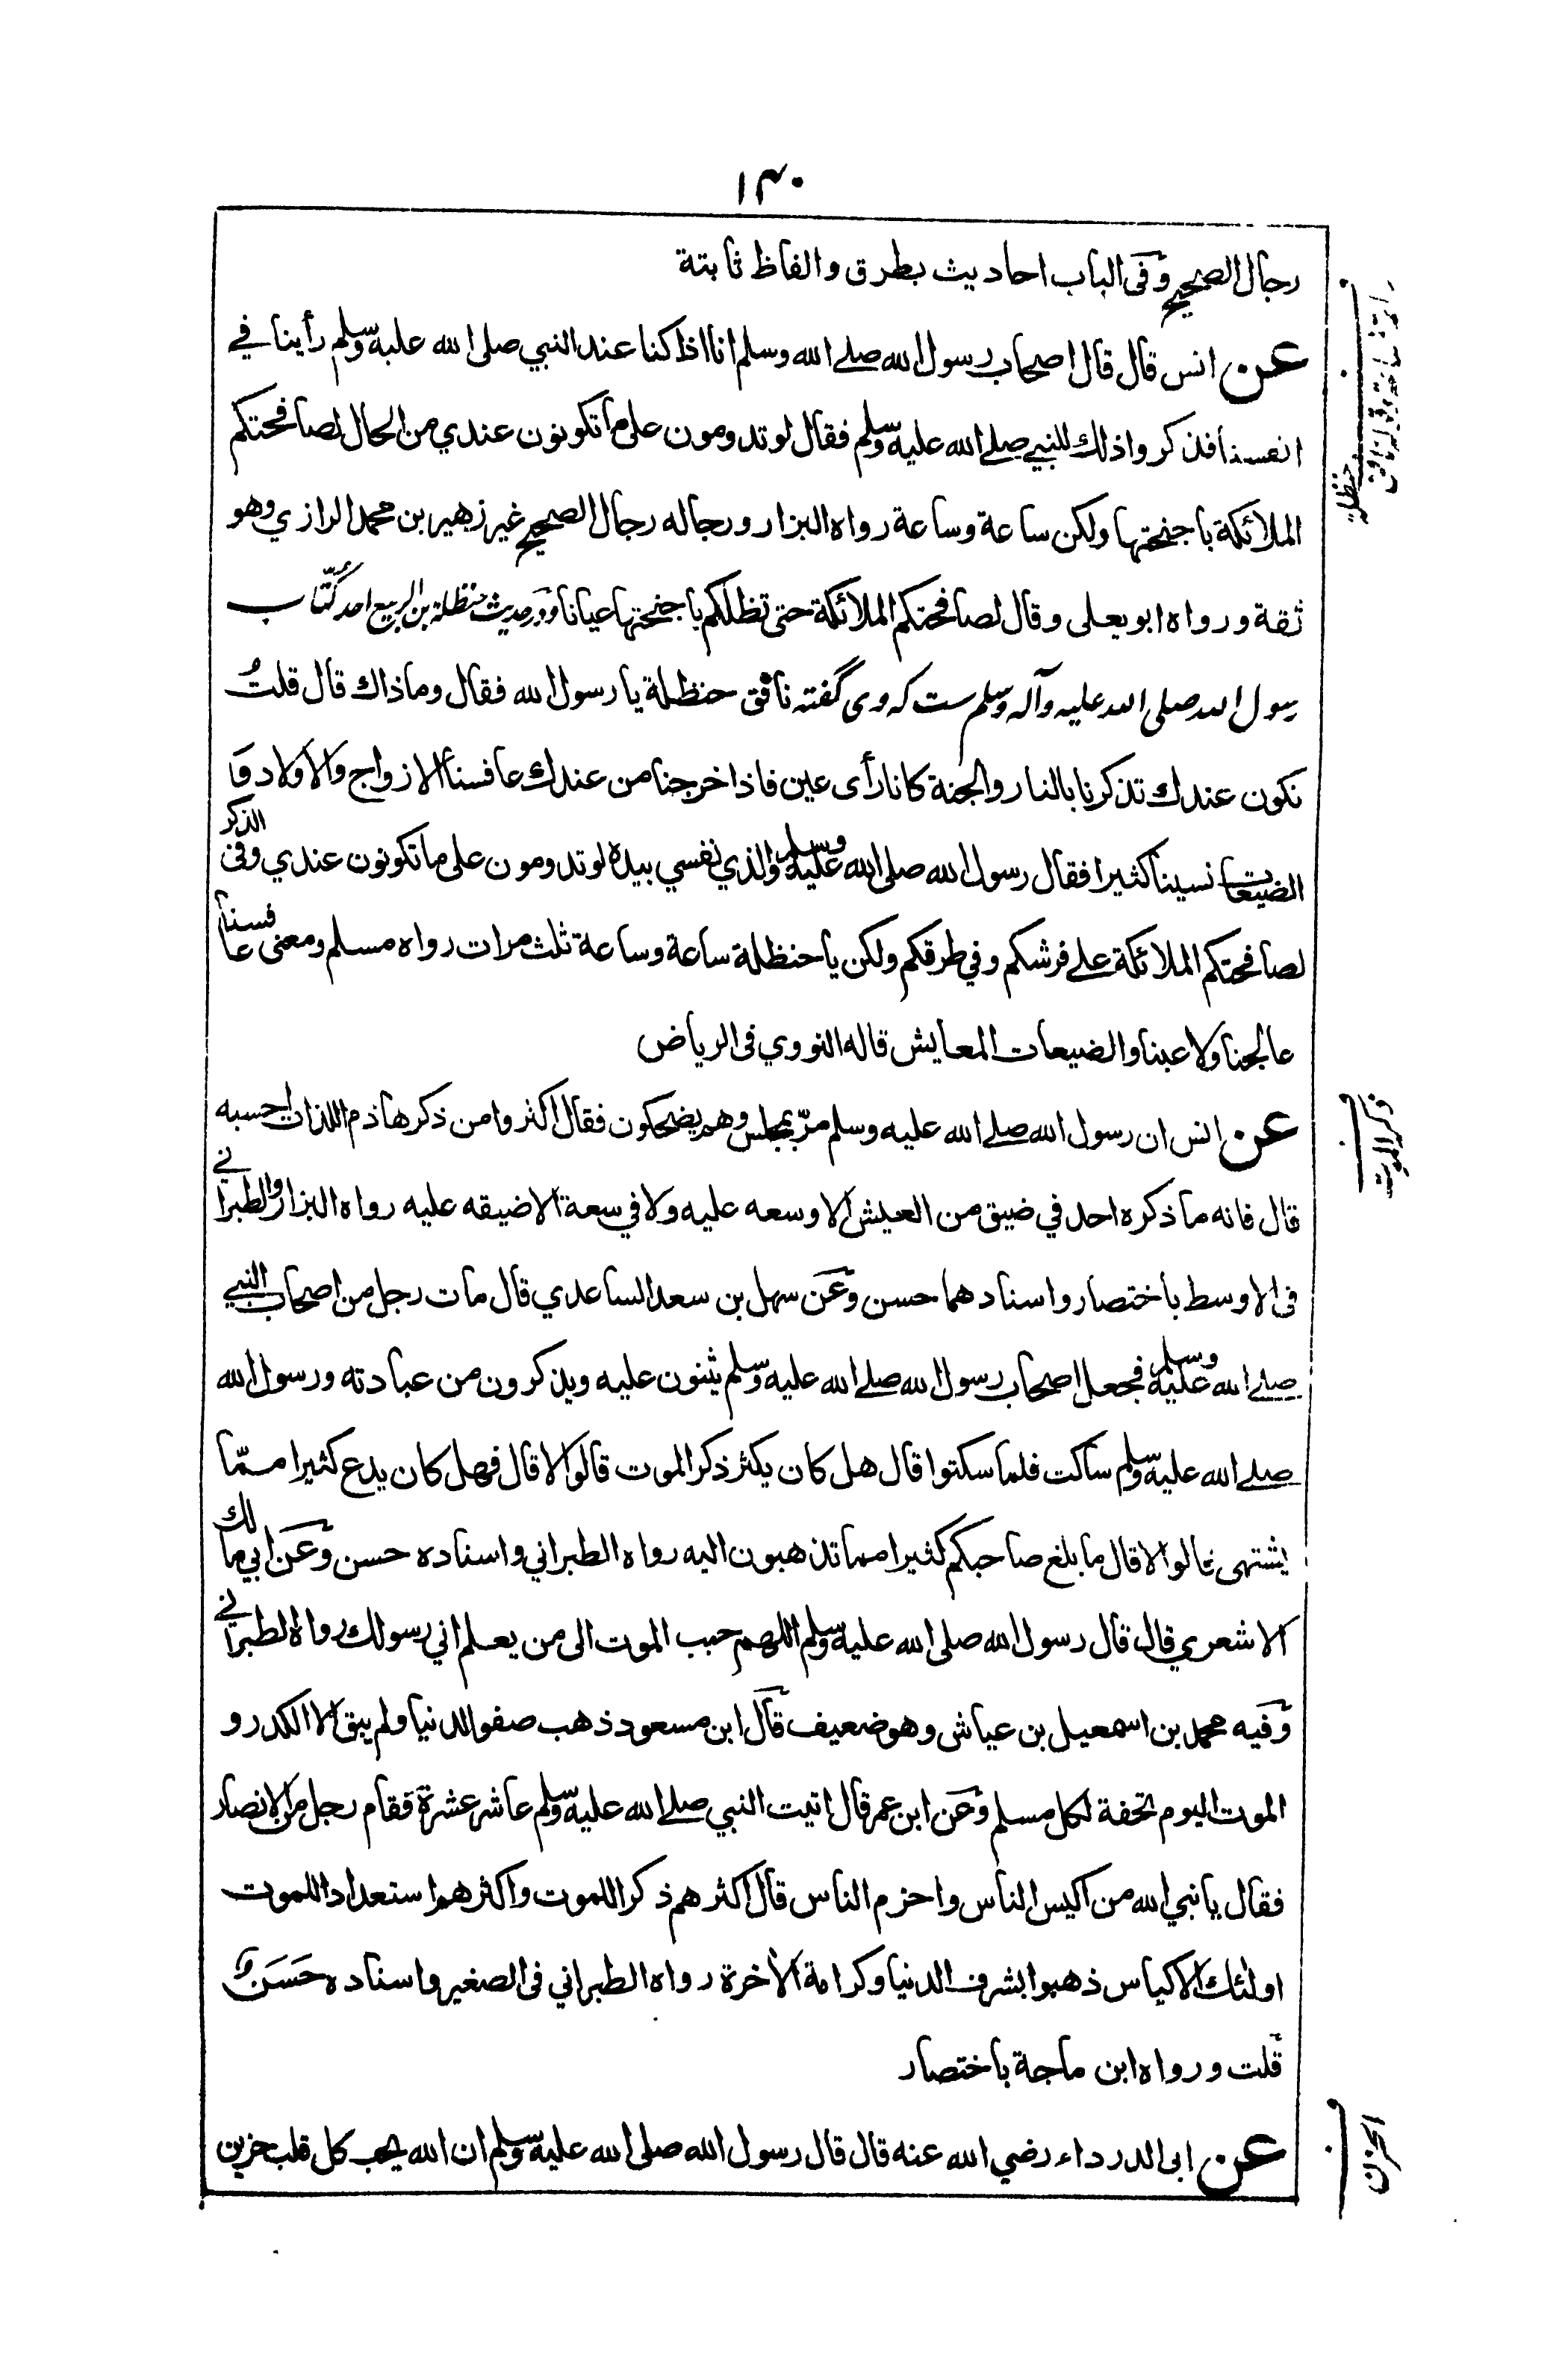 ١٣٠
رجال الصحيح وفى الباب احاديث بطرق والفاظ ثابتة
عن انس قال قال اصحاب رسول الله صلے الله وسلم انا اذا كنا عند النبي صلى الله عليه وسلم رأينا في
انفسنا فذكروا ذلك للنبي صلے الله عليه وسلم فقال لو تدومون على ما تكونون عندي من الحال لصافحتكم
الملائكة باجنحتها ولكن ساعة وساعة رواه البزار ورجاله رجال الصحيح غير زهير بن محمد الرازي وهو
ثقة ورواه ابو يعلى وقال لصافحتكم الملائكة حتى تظلكم باجنحتها عيانا ودر حديث حنظلة بن الربيع احد كُتّاب
رسول الله صلى الله عليه وآله وسلم ست كه وى گفته نافق حنظلة يا رسول الله فقال وما ذاك قال قلتُ
نكون عندك تذكرنا بالنار والجنة كانا رأى عين فاذا خرجنا من عندك عافسنا الازواج والاولاد وا
الضيعات نسينا كثيرا فقال رسول الله صلى الله عليه وسلم والذي نفسي بيده لو تدومون على ما تكونون عندي وفى الذكر
لصافحتكم الملائكة علے فرشكم وفي طرقكم ولكن يا حنظلة ساعة وساعة ثلث مرات رواه مسلم ومعنى عافسنا
عالجنا ولاعبنا والضيعات المعايش قاله النووي فى الرياض
عن انس ان رسول الله صلے الله عليه وسلم مرّ بمجلس وهم يضحكون فقال اكثروا من ذكر هاذم اللذات احسبه
قال فانه ما ذكره احد في ضيق من العيش الا وسعه عليه ولا في سعة الا ضيقه عليه رواه البزار والطبراني
فى الاوسط باختصار واسنادهما حسن وعن سهل بن سعد الساعدي قال مات رجل من اصحاب النبي
صلے الله عليه وسلم فجعل اصحاب رسول الله صلے الله عليه وسلم يثنون عليه ويذكرون من عبادته ورسول الله
صلے الله عليه وسلم ساكت فلما سكتوا قال هل كان يكثر ذكر الموت قالوا لا قال فهل كان يدع كثيرا ممّا
يشتهى قالوا لا قال ما بلغ صاحبكم كثيرا مما تذهبون اليه رواه الطبراني واسناده حسن وعن ابي مالك
الاشعري قال قال رسول الله صلى الله عليه وسلم اللهم حبب الموت الى من يعلم اني رسولك رواه الطبراني
وفيه محمد بن اسمعيل بن عياش وهو ضعيف قال ابن مسعود ذهب صفو الدنيا ولم يبق الا الكدر و
الموت اليوم تحفة لكل مسلم وعن ابن عمر قال اتيت النبي صلے الله عليه وسلم عاشر عشرة فقام رجل من الانصار
فقال يا نبي الله من اكيس الناس واحزم الناس قال اكثرهم ذكرا للموت واكثرهم استعدادا للموت
اولئك الاكياس ذهبوا بشرف الدنيا وكرامة الآخرة رواه الطبراني فى الصغير واسناده حَسَن
قلت ورواه ابن ماجة باختصار
عن ابى الدرداء رضي الله عنه قال قال رسول الله صلى الله عليه وسلم ان الله يحب كل قلب حزين
حنظلة
ذكر الموت
الحزن